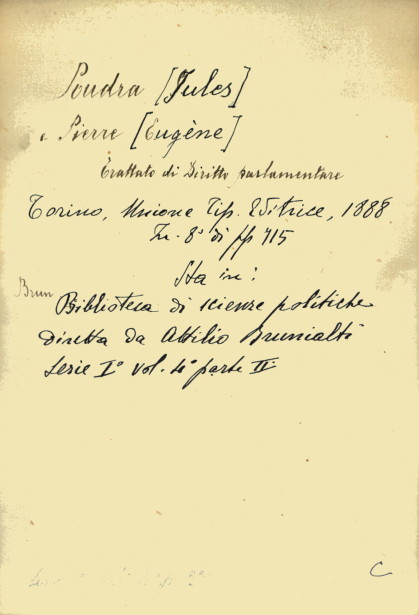 Poudra [Jules]
e Pierre [Eugène]
Trattato di Diritto parlamentare
Torino, Unione Tip. Editrice, 1888
In-8° di pp 715
Sta in:
Brun
Biblioteca di scienze politiche
diretta da Attilio Brunialti
Serie I° vol. 4° parte II
C